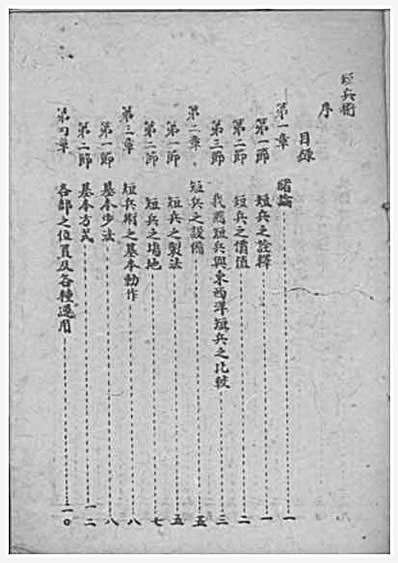 短兵術
序
目錄
第一章 緒論 一
第一節 短兵之詮釋 一
第二節 短兵之價值 二
第三節 我國短兵與東西洋短兵之比較 三
第二章 短兵之設備 五
第一節 短兵之製法 五
第二節 短兵之場地 七
第三章 短兵術之基本動作 八
第一節 基本步法 八
第二節 基本方式 一二
第四章 各部之位置及各種運用 一〇